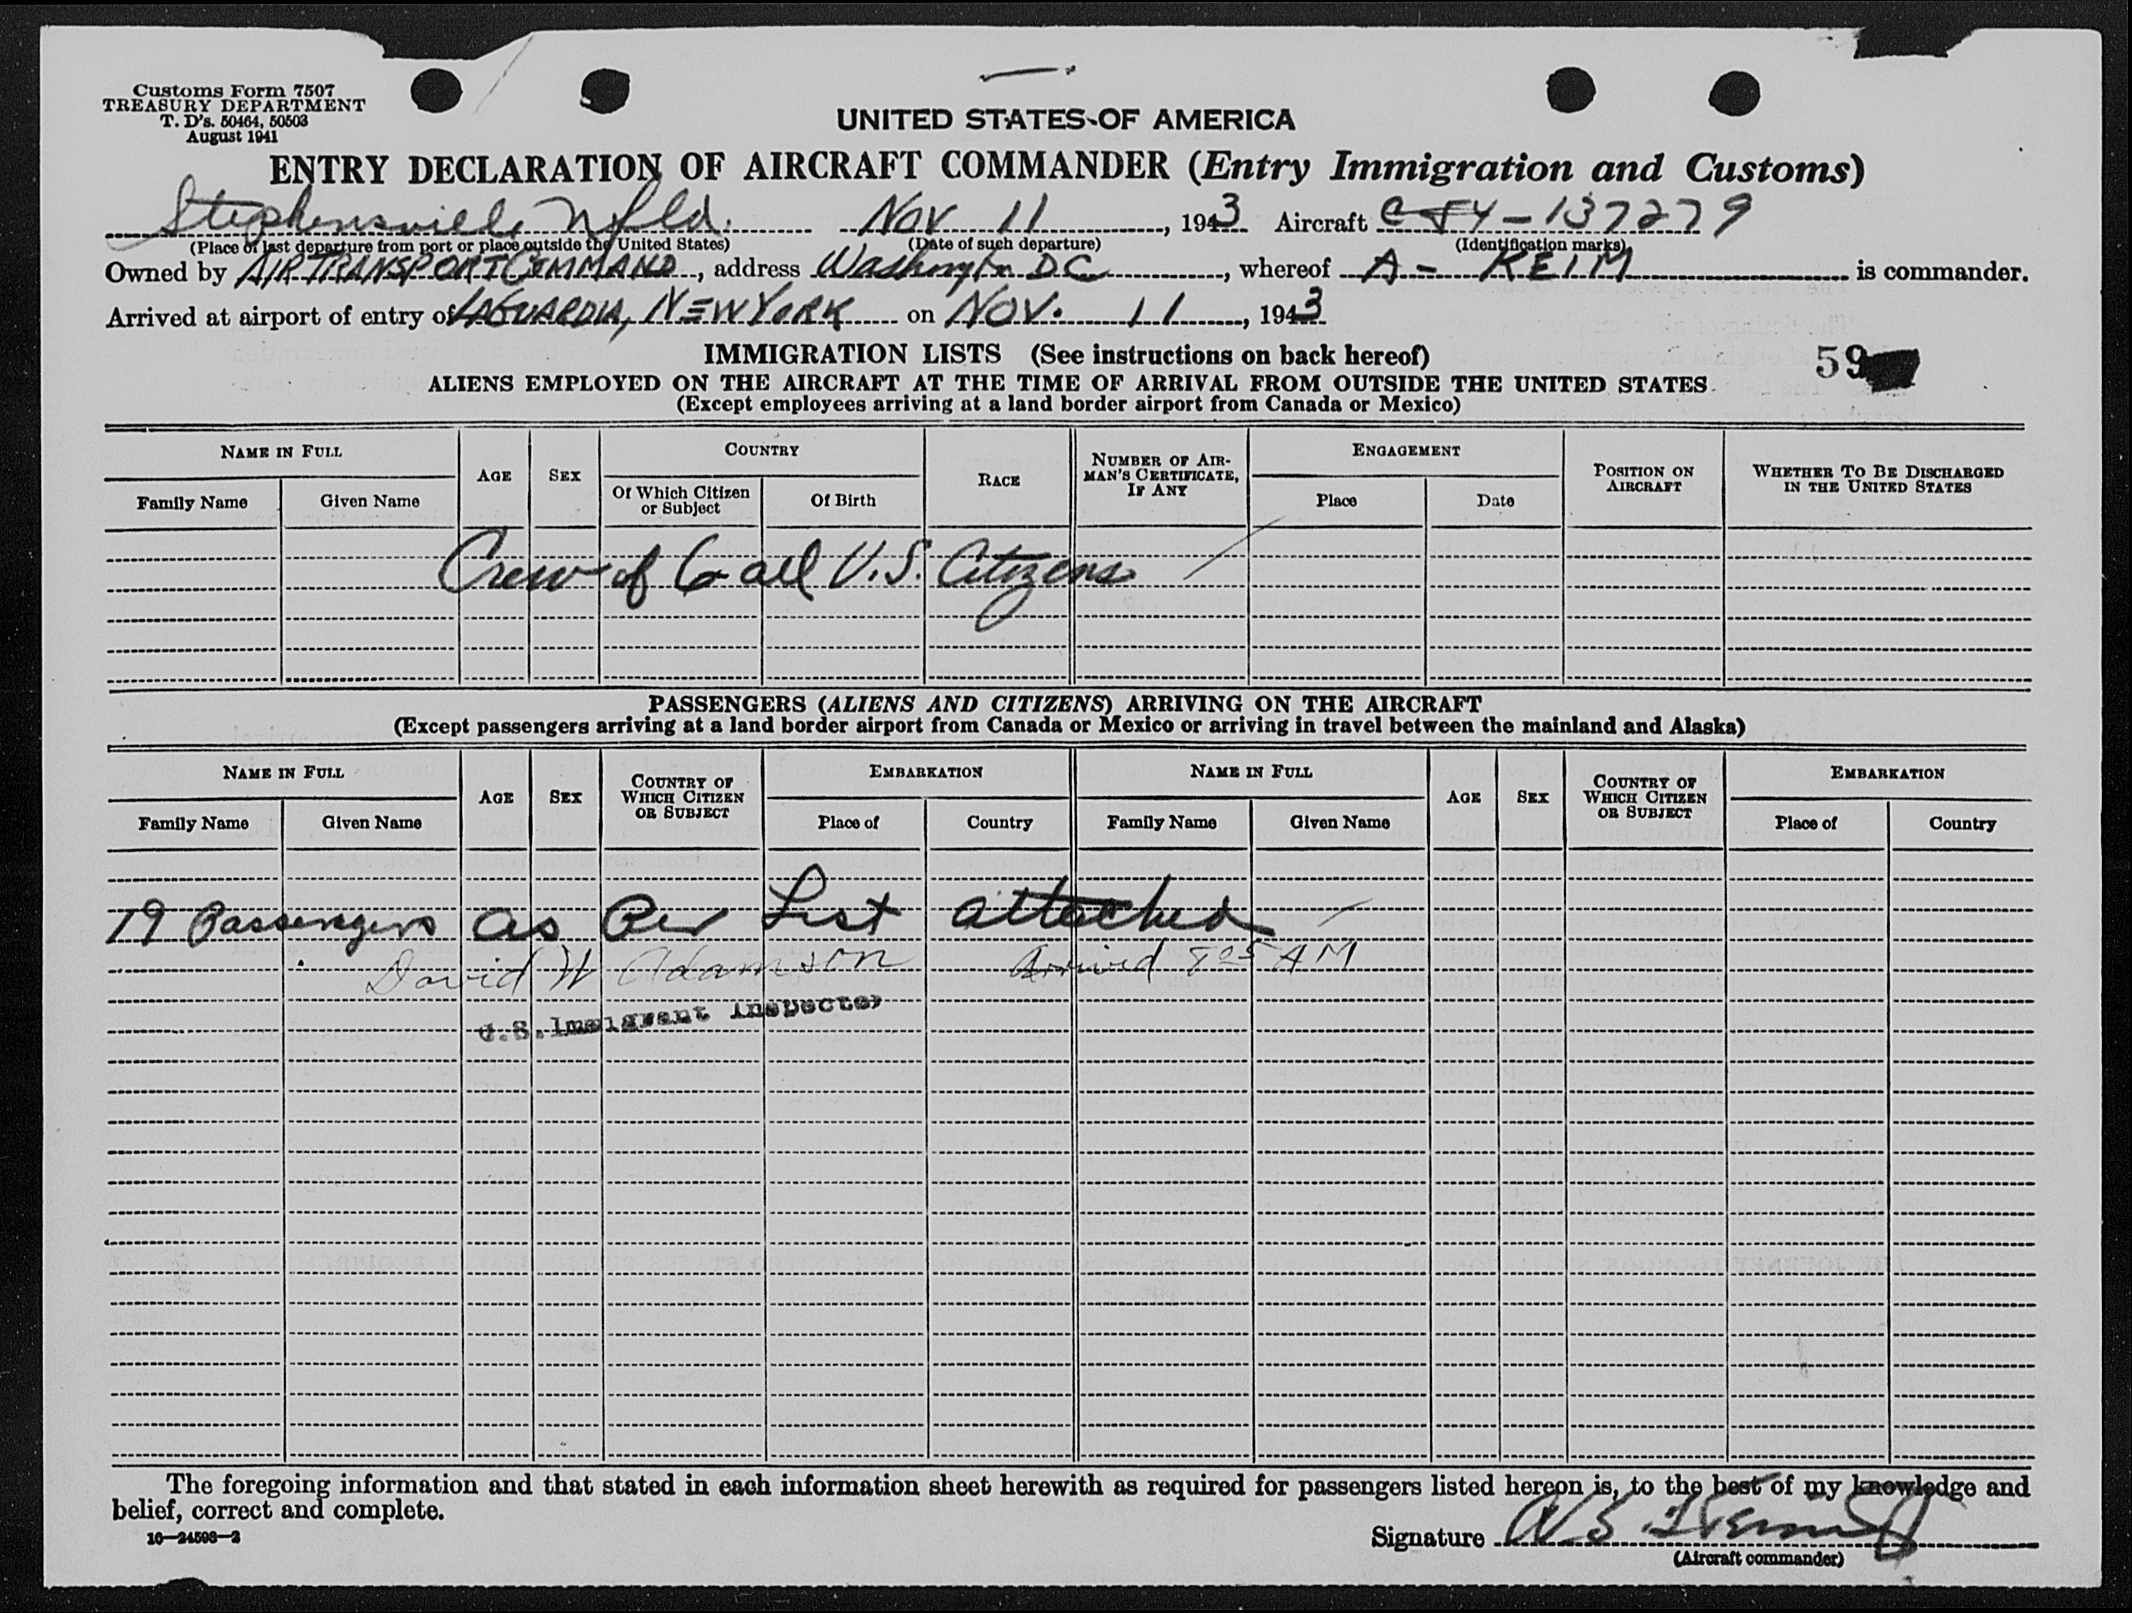 Customs Form 7507
TREASURY DEPARTMENT
T. D's. 50464, 50503
August 1941
UNITED STATES OF AMERICA
ENTRY DECLARATION OF AIRCRAFT COMMANDER (Entry Immigration and Customs)
Stephensville Nfld. Nov 11, 1943 Aircraft C-54-137279
(Place of last departure from port or place outside the United States) (Date of such departure) (Identification marks)
Owned by AIR TRANSPORT COMMAND, address Washington D C, whereof A- KEIM is commander.
Arrived at airport of entry of LAGUARDIA, NEW YORK on NOV. 11, 1943
IMMIGRATION LISTS (See instructions on back hereof)
59
ALIENS EMPLOYED ON THE AIRCRAFT AT THE TIME OF ARRIVAL FROM OUTSIDE THE UNITED STATES
(Except employees arriving at a land border airport from Canada or Mexico)
NAME IN FULL AGE SEX COUNTRY RACE NUMBER OF AIRMAN'S CERTIFICATE, IF ANY ENGAGEMENT POSITION ON AIRCRAFT WHETHER TO BE DISCHARGED IN THE UNITED STATES
Family Name Given Name Of Which Citizen or Subject Of Birth Place Date
Crew of 6 all U.S. Citizens
PASSENGERS (ALIENS AND CITIZENS) ARRIVING ON THE AIRCRAFT
(Except passengers arriving at a land border airport from Canada or Mexico or arriving in travel between the mainland and Alaska)
NAME IN FULL AGE SEX COUNTRY OF WHICH CITIZEN OR SUBJECT EMBARKATION NAME IN FULL AGE SEX COUNTRY OF WHICH CITIZEN OR SUBJECT EMBARKATION
Family Name Given Name Place of Country Family Name Given Name Place of Country
19 Passengers as Per List attached
David W Adamson Arrived 8 05 AM
U.S. Immigrant Inspector
The foregoing information and that stated in each information sheet herewith as required for passengers listed hereon is, to the best of my knowledge and
belief, correct and complete.
16—24598-2
Signature
(Aircraft commander)